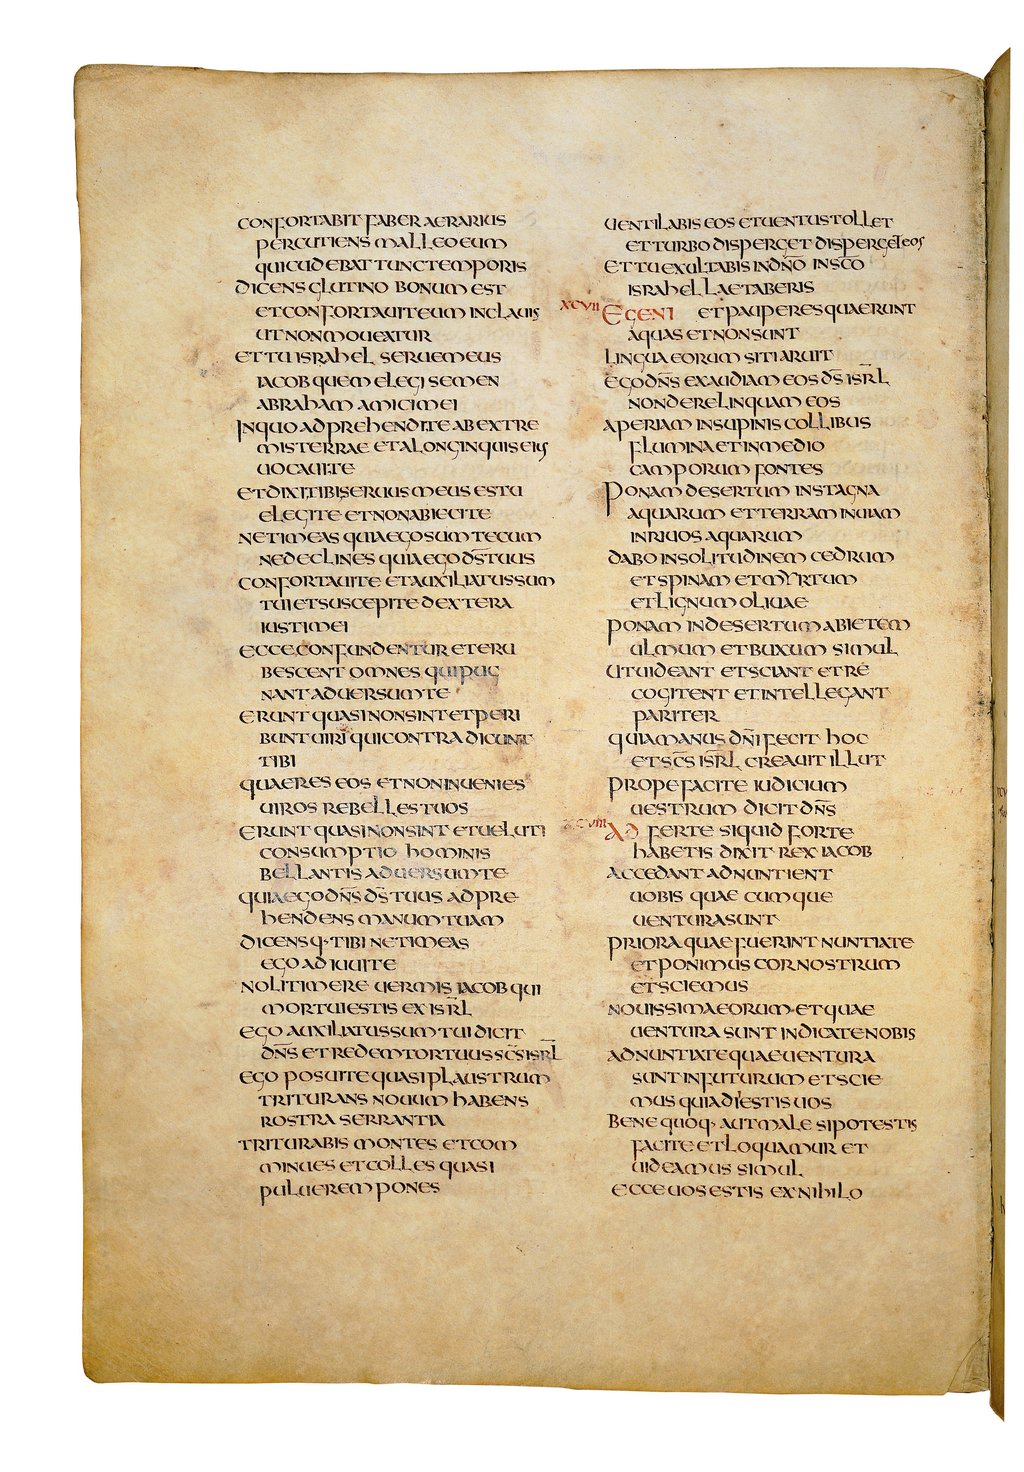 CONFORTABIT FABER AERARIUS
PERCUTIENS MALLEO EUM
QUI CUDEBAT TUNC TEMPORIS
DICENS GLUTINO BONUM EST
ET CONFORTAUIT EUM IN CLAUIS
UT NON MOUEATUR
ET TU ISRAHEL SERUE MEUS
IACOB QUEM ELEGI SEMEN
ABRAHAM AMICI MEI
IN QUO ADPREHENDI TE AB EXTRE
MIS TERRAE ET A LONGINQUIS EIUS
UOCAUI TE
ET DIXI TIBI SERUUS MEUS ES TU
ELEGI TE ET NON ABIECI TE
NE TIMEAS QUIA EGO SUM TECUM
NE DECLINES QUIA EGO D̅S̅ TUUS
CONFORTAUI TE ET AUXILIATUS SUM
TUI ET SUSCEPI TE DEXTERA
IUSTI MEI
ECCE CONFUNDENTUR ET ERU
BESCENT OMNES QUI PUG
NANT ADUERSUM TE
ERUNT QUASI NON SINT ET PERI
BUNT UIRI QUI CONTRADICUNT
TIBI
QUAERES EOS ET NON INUENIES
UIROS REBELLES TUOS
ERUNT QUASI NON SINT ET UELUTI
CONSUMPTIO HOMINIS
BELLANTIS ADUERSUM TE
QUIA EGO D̅N̅S̅ D̅S̅ TUUS ADPRE
HENDENS MANUM TUAM
DICENS Q· TIBI NE TIMEAS
EGO ADIUUI TE
NOLI TIMERE UERMIS IACOB QUI
MORTUI ESTIS EX ISR̅L
EGO AUXILIATUS SUM TUI DICIT
D̅N̅S̅ ET REDEMTOR TUUS S̅C̅S̅ ISR̅L
EGO POSUI TE QUASI PLAUSTRUM
TRITURANS NOUUM HABENS
ROSTRA SERRANTIA
TRITURABIS MONTES ET COM
MINUES ET COLLES QUASI
PULUEREM PONES
UENTILABIS EOS ET UENTUS TOLLET
ET TURBO DISPERGET DISPERGET EOS
ET TU EXULTABIS IN D̅N̅O̅ IN S̅C̅O̅
ISRAHEL LAETABERIS
XCVII EGENI ET PAUPERES QUAERUNT
AQUAS ET NON SUNT
LINGUA EORUM SITI ARUIT
EGO D̅N̅S̅ EXAUDIAM EOS D̅S̅ ISR̅L
NON DERELINQUAM EOS
APERIAM IN SUPINIS COLLIBUS
FLUMINA ET IN MEDIO
CAMPORUM FONTES
PONAM DESERTUM IN STAGNA
AQUARUM ET TERRAM INUIAM
IN RIUOS AQUARUM
DABO IN SOLITUDINEM CEDRUM
ET SPINAM ET MYRTUM
ET LIGNUM OLIUAE
PONAM IN DESERTUM ABIETEM
ULMUM ET BUXUM SIMUL
UT UIDEANT ET SCIANT ET RE
COGITENT ET INTELLEGANT
PARITER
QUIA MANUS D̅N̅I̅ FECIT HOC
ET S̅C̅S̅ ISR̅L CREAUIT ILLUT
PROPE FACITE IUDICIUM
UESTRUM DICIT D̅N̅S̅
XCVIII ADFERTE SI QUID FORTE
HABETIS DIXIT REX IACOB
ACCEDANT ADNUNTIENT
UOBIS QUAECUMQUE
UENTURA SUNT
PRIORA QUAE FUERINT NUNTIATE
ET PONIMUS COR NOSTRUM
ET SCIEMUS
NOUISSIMA EORUM· ET QUAE
UENTURA SUNT INDICATE NOBIS
ADNUNTIATE QUAE UENTURA
SUNT IN FUTURUM ET SCIE
MUS QUIA DI ESTIS UOS
BENE QUOQ· AUT MALE SI POTESTIS
FACITE ET LOQUAMUR ET
UIDEAMUS SIMUL
ECCE UOS ESTIS EX NIHILO